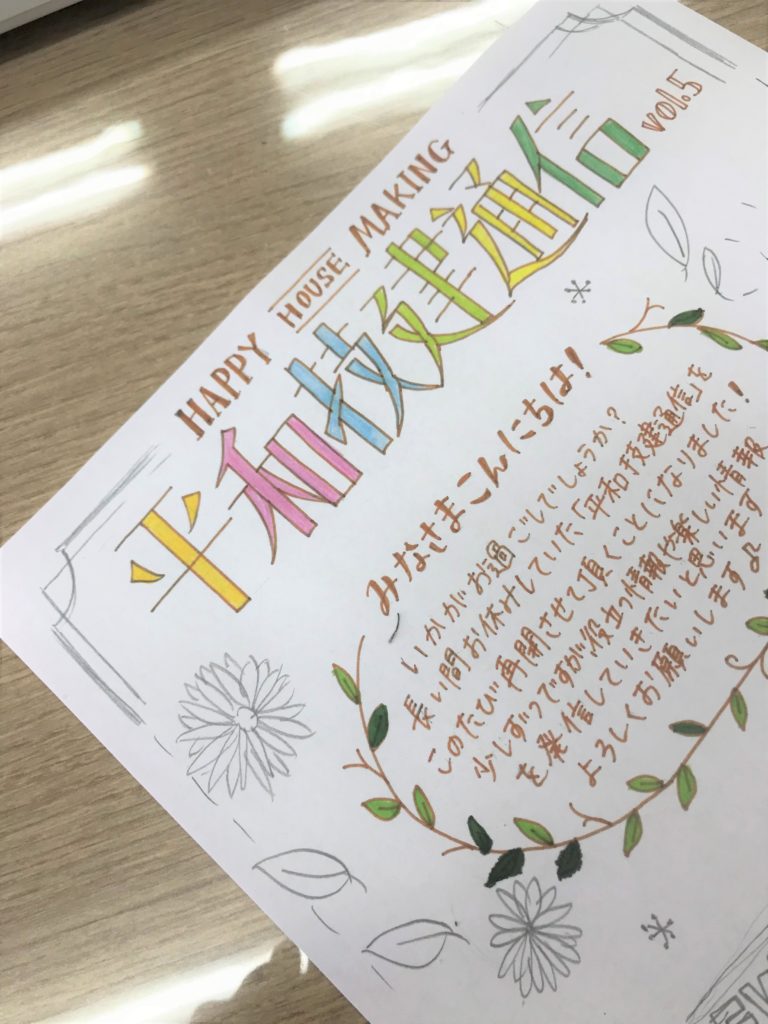 HAPPY HOUSE MAKING
平和技建通信 vol.5
みなさまこんにちは!
いかがお過ごしでしょうか?
長い間お休みしていた「平和技建通信」を
このたび再開させて頂くことになりました!
少しずつですが役立つ情報や楽しい情報
を発信していきたいと思います
よろしくお願いします♪